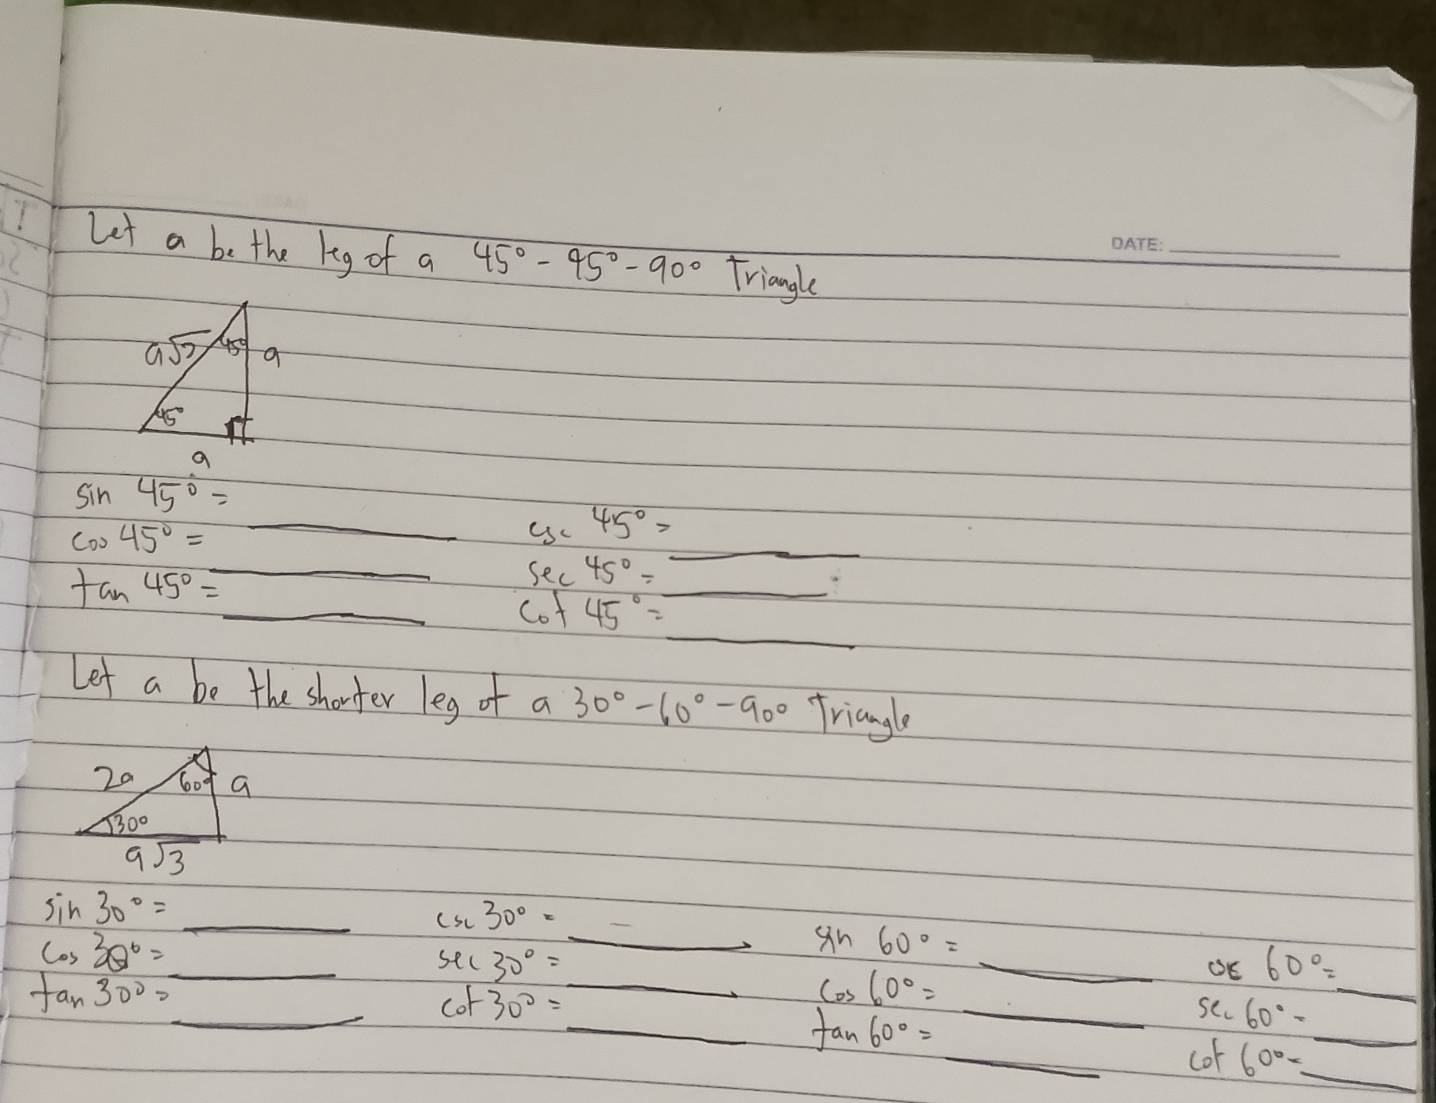 DATE:
Let a be the leg of a 45° - 45° - 90° Triangle
a√2 45° a
45°
a
sin 45° = ______ csc 45° = ______
cos 45° = ______ sec 45° = ______
tan 45° = ______ cot 45° = ______
Let a be the shorter leg of a 30° - 60° - 90° Triangle
2a 60° a
30°
a√3
sin 30° = ______ csc 30° = ______ sin 60° = ______ csc 60° = ______
cos 30° = ______ sec 30° = ______ cos 60° = ______ sec 60° = ______
tan 30° = ______ cot 30° = ______ tan 60° = ______ cot 60° = ______